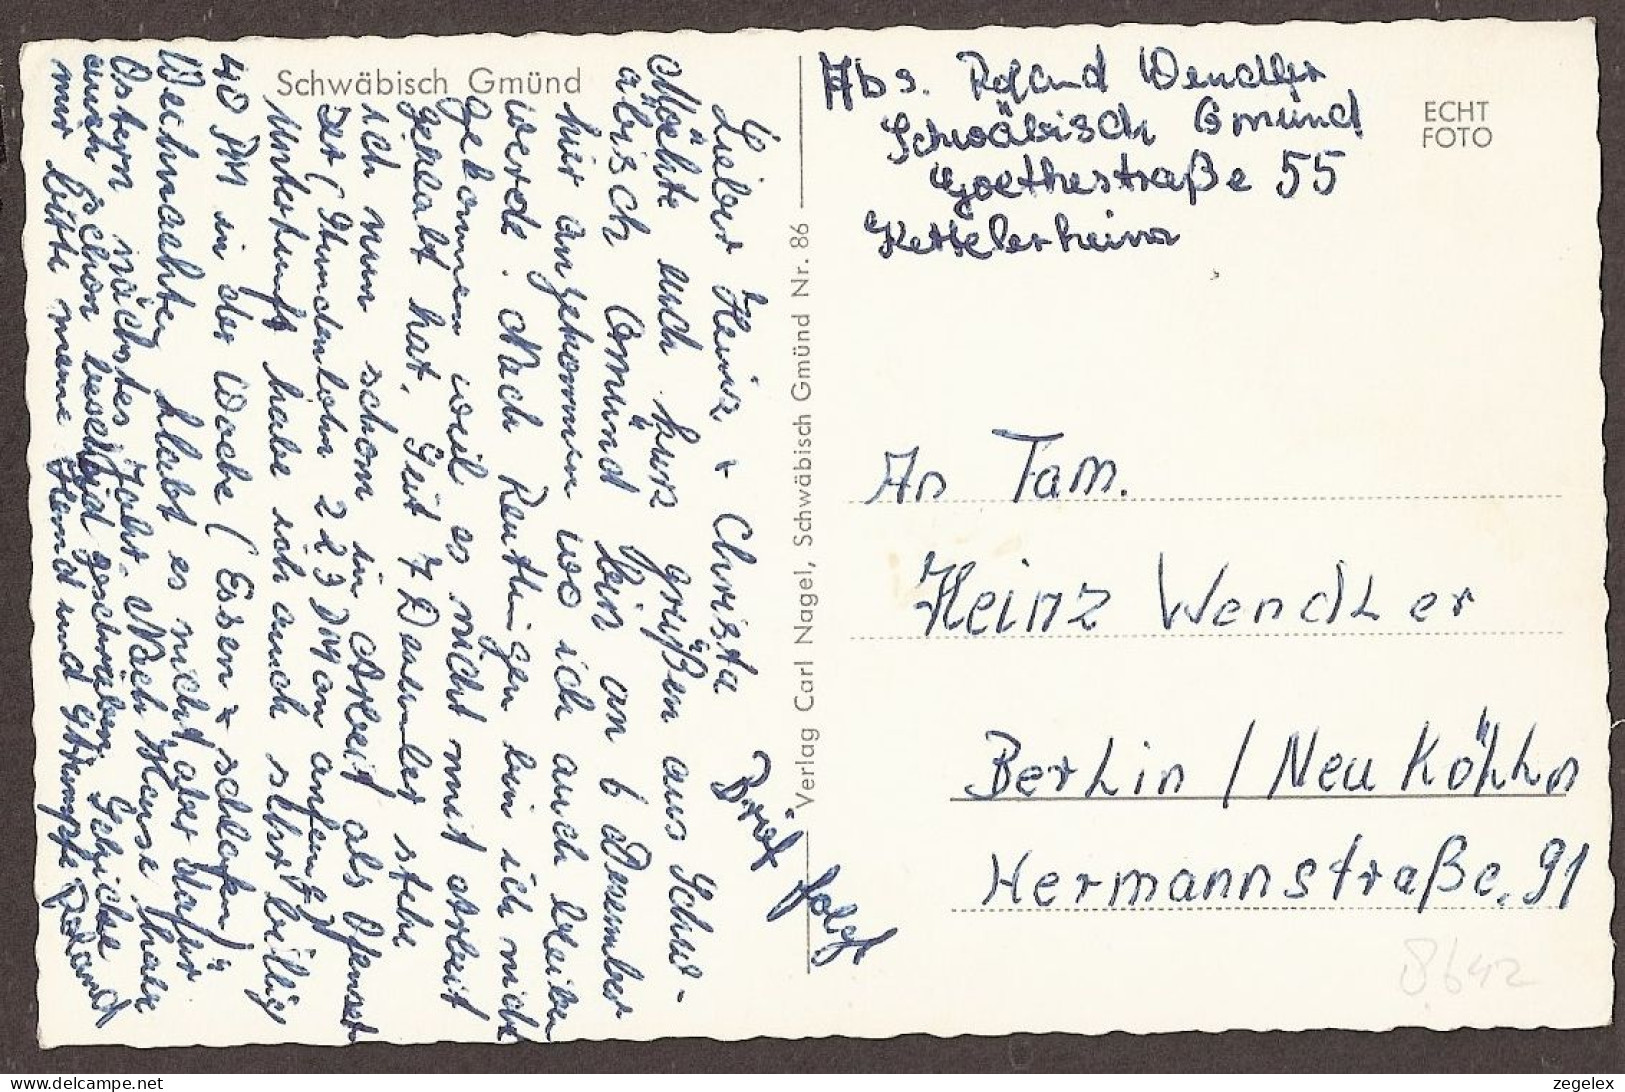 Schwäbisch Gmünd
Lieber Heinz + Christa
Möchte euch hürz grüßen aus Schw-
äbisch Gmünd bin an 6 Dezember
hir angekommen wo ich auch bleiben
werde. Nach Reutlingen bin ich nicht
gekommen weil es nicht mit arbeit
geklabt hat. Seit 7 Dezember stehe
ich nun schon in Arbeit als Ofenset
zer (Stundenlohn 2 23 DM an anfang)
Unterkunft habe ich auch sehr billig
40 DM in der Woche (Essen + schlafen)
Weihnachten klabt es nicht aber dafür
Ostern nächstes Jahr. Nach Hause habe
auch schon geschrieben
mir bitte meine Hemd und Strümpfe Roland
Brief folgt
Verlag Carl Nagel, Schwäbisch Gmünd Nr. 86
Abs. Roland Wendler
Schwäbisch Gmünd
Goethestraße 55
Kettelerheim
ECHT
FOTO
An Fam.
Heinz Wendler
Berlin / Neu Kölln
Hermannstraße. 91
8642
zegelex
delcampe.net